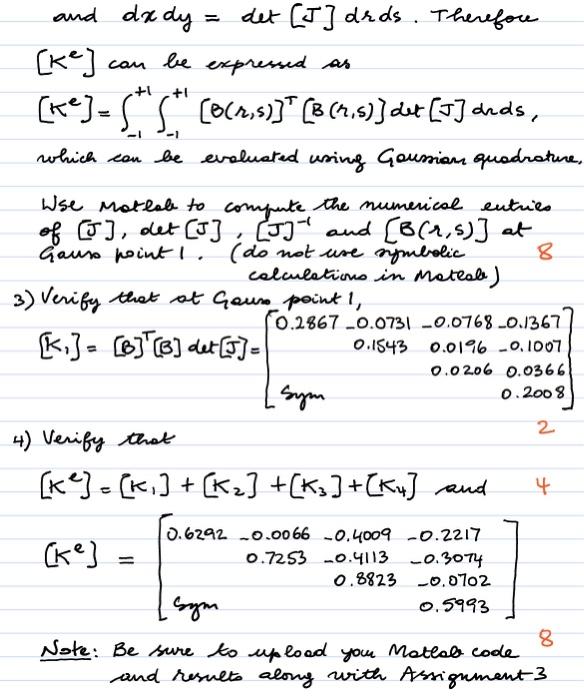 and dxdy = det [J] drds. Therefore
[Kᵉ] can be expressed as
[Kᵉ] = ∫₋₁⁺¹ ∫₋₁⁺¹ [B(r,s)]ᵀ [B(r,s)] det [J] drds,
which can be evaluated using Gaussian quadrature.
Use Matlab to compute the numerical entries
of [J], det [J], [J]⁻¹ and [B(r,s)] at
Gauss point 1. (do not use symbolic 8
calculations in Matlab)
3) Verify that at Gauss point 1,
[K₁] = [B]ᵀ[B] det[J] = [0.2867 -0.0731 -0.0768 -0.1367
0.1543 0.0196 -0.1007
0.0206 0.0366
Sym 0.2008]
2
4) Verify that
[Kᵉ] = [K₁] + [K₂] + [K₃] + [K₄] and 4
[Kᵉ] = [0.6292 -0.0066 -0.4009 -0.2217
0.7253 -0.4113 -0.3074
0.8823 -0.0702
Sym 0.5993]
8
Note: Be sure to upload you Matlab code
and results along with Assignment 3